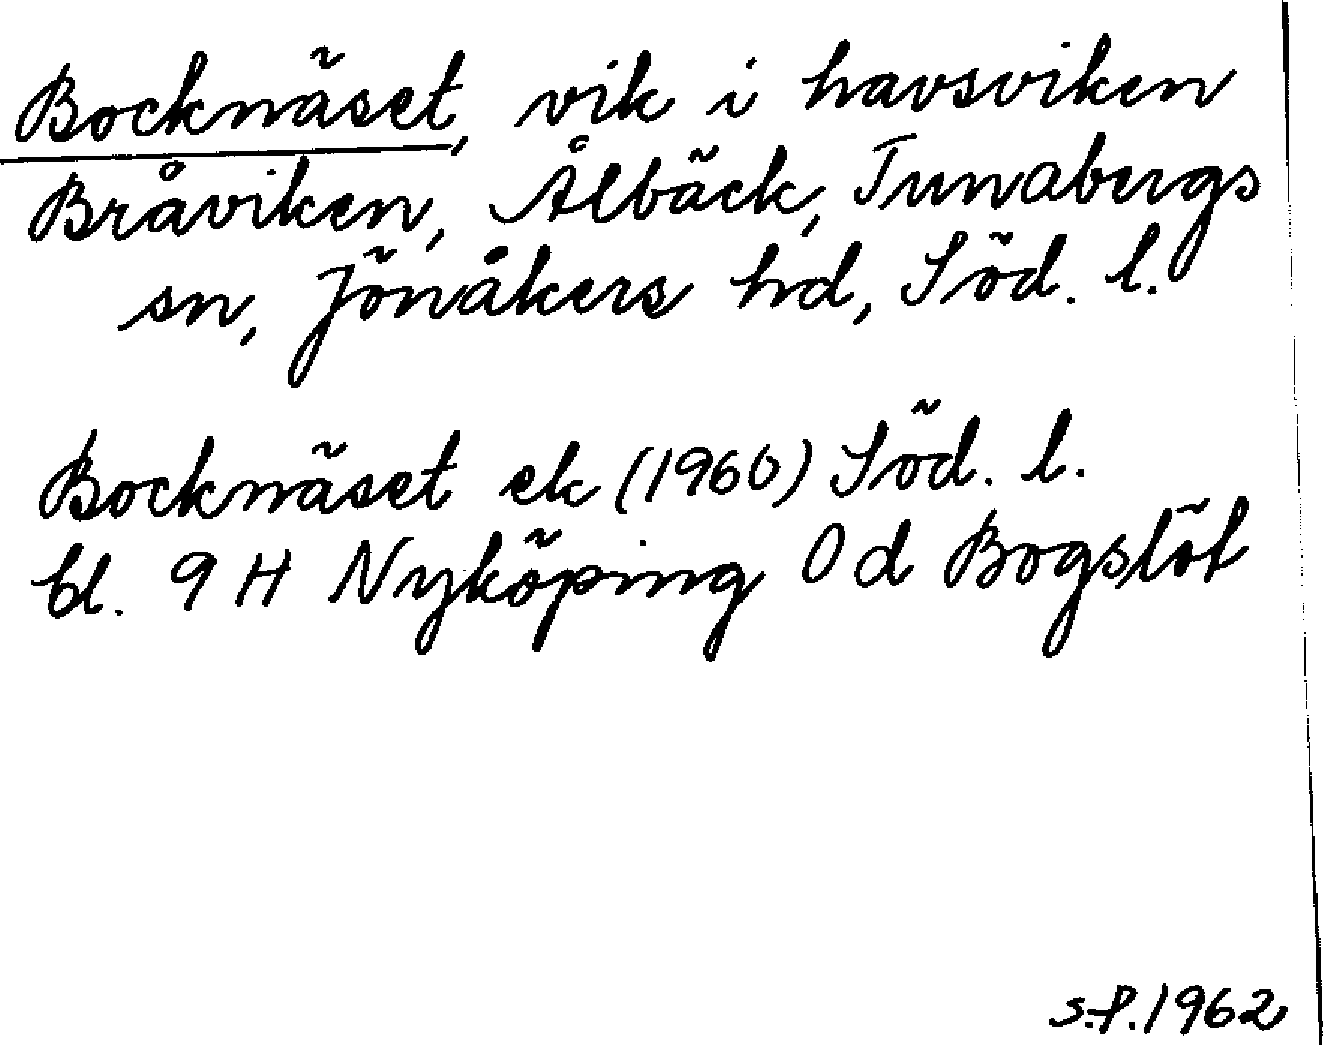 Bocknäset, vik i havsviken
Bråviken, Ålbäck, Tunabergs
sn, Jönåkers hd, Söd. l.
Bocknäset ek (1960) Söd. l.
bl. 9 H Nyköping 0 d Bogslöt
S.P. 1962